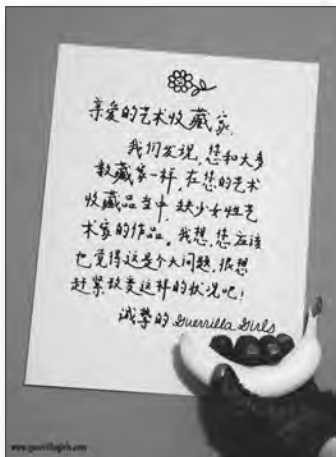 亲爱的艺术收藏家,
我们发现,您和大多
数藏家一样,在您的艺术
收藏品当中,缺少女性艺
术家的作品。我想,您应该
也觉得这是个大问题,很想
赶紧改变这样的状况吧!
诚挚的 Guerrilla Girls
www.guerrillagirls.com